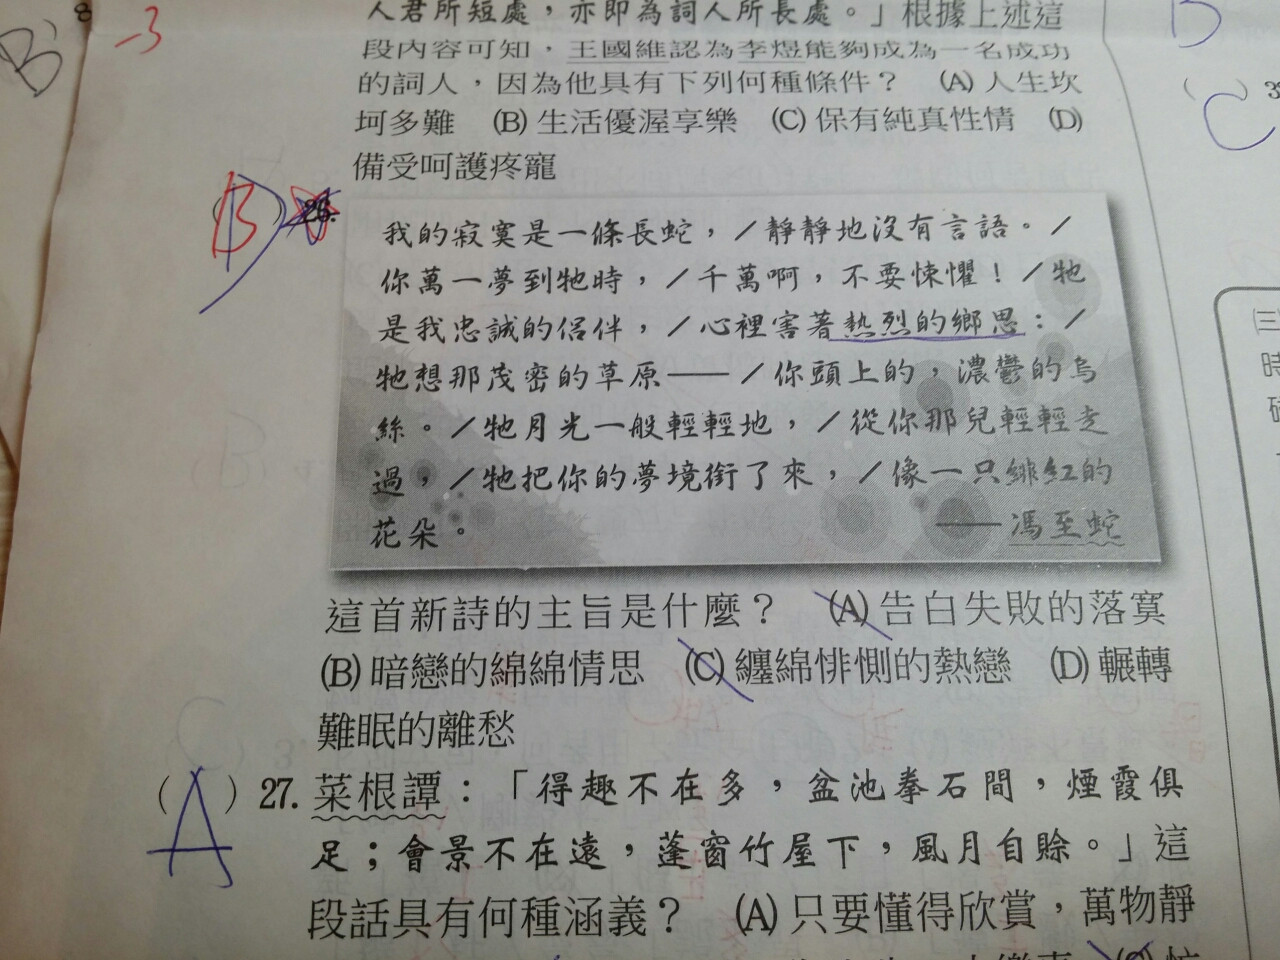 人君所短處，亦即為詞人所長處。」根據上述這
段內容可知，王國維認為李煜能夠成為一名成功
的詞人，因為他具有下列何種條件？ (A) 人生坎
坷多難 (B) 生活優渥享樂 (C) 保有純真性情 (D)
備受呵護疼寵
(B) 26.
我的寂寞是一條長蛇，／靜靜地沒有言語。／
你萬一夢到牠時，／千萬啊，不要悚懼！／牠
是我忠誠的侶伴，／心裡害著熱烈的鄉思：／
牠想那茂密的草原——／你頭上的，濃鬱的烏
絲。／牠月光一般輕輕地，／從你那兒輕輕走
過，／牠把你的夢境銜了來，／像一只緋紅的
花朵。 ——馮至蛇
這首新詩的主旨是什麼？ (A) 告白失敗的落寞
(B) 暗戀的綿綿情思 (C) 纏綿悱惻的熱戀 (D) 輾轉
難眠的離愁
(A) 27. 菜根譚：「得趣不在多，盆池拳石間，煙霞俱
足；會景不在遠，蓬窗竹屋下，風月自賒。」這
段話具有何種涵義？ (A) 只要懂得欣賞，萬物靜
8
B
-3
D
C
3
(三)
時